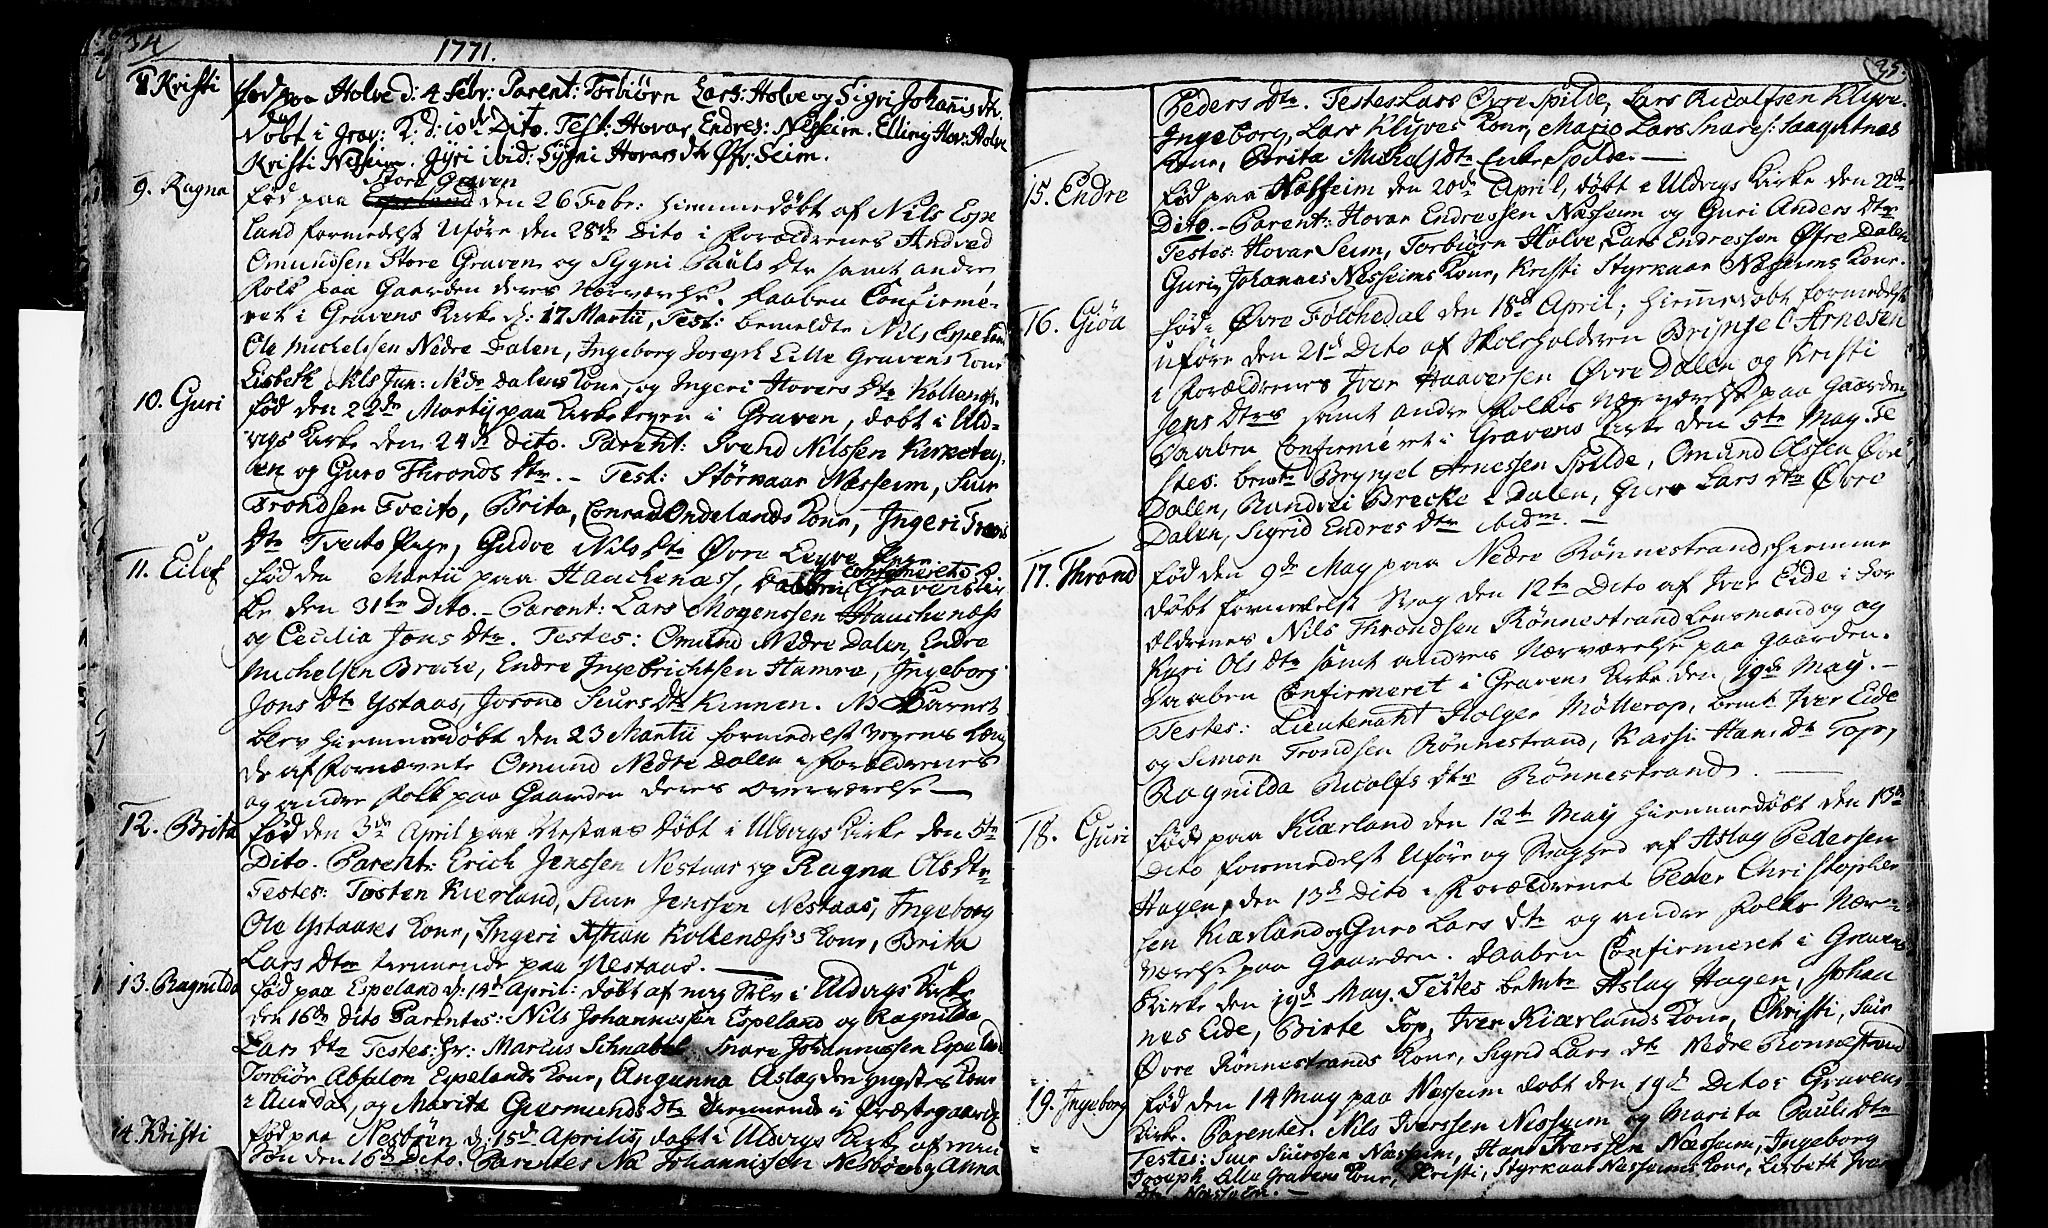 34
1771.
8. Kristi
fød paa Holve d: 4 Febr: Parent: Torbiørn Lars: Holve og Sigri Johannis dtr.
døbt i Grav: K: d: 10de Dito. Test: Hovar Endres: Nesseim. Elling Hov: Holve
Kristi Nesseim. Gyri ibid: Sygni Hovars dtr Øfr: Seim.
9. Ragna
Store Graven
fød paa Espeland den 26 Febr: hiemmedøbt af Nils Espe
land formedelst Uføre den 28de Dito i Forældrenes Andved
Omundsen Store Graven og Sygni Pauls Dtr samt andre
Folk paa Gaarden deres Nærværelse. Daaben Confirme-
ret i Gravens Kirke d: 17 Martii, Test: bemeldte Nils Espeland
Ole Michelssen Nedre Dalen, Ingeborg Joseph Lille Gravens Kone
Lisbeth Nils Jun: Nedr Dalens Kone, og Ingeri Hovars Dtr Kollenæs.
10. Guri
fød den 22de Martij paa Kirketegen i Graven, døbt i Uld-
vigs Kirke den 24de Dito. Parent: Svend Nilssen Kirketeg-
en og Guro Thronds Dtr. - Test: Störkaar Næsseim, Siur
Trondsen Tveito, Brita, Conrad Ondelands Kone, Ingeri Tronds
Dtr Tveito Pige, Gudve Nils Dtr Øvre Legve Pige
11. Eilef
fød den Martii paa Hauckenæss, Daaben confirmeret i Gravens Kir
ke den 31te Dito. - Parent: Lars Mogenssen Hauchenæss
og Cecilia Jons Dtr. Testes: Omund Nedre Dalen, Endre
Michelsen Breche, Endre Ingebrichtsen Hamre, Ingeborg
Jons Dtr Ystaas, Jorond Siurs Dtr Kinnen. NB Barnet
blev hiemmedøbt den 23 Martii formedelst Vegens Læng
de af fornævnte Omund Nedre Dalen i Forældrenes
og andre Folk paa Gaarden deres Overværelse
12. Brita
fød den 3de April paa Nestaas døbt i Uldvigs Kirke den 5te
Dito. Parent: Erich Jenssen Nestaas og Ragna Ols Dtr
Testes: Tosten Kierland, Siur Jenssen Nestaas, Ingeborg
Ole Ystaases Kone, Ingeri Kollenæss's Kone, Brita
Lars Dtr tienende paa Nestaas.
13. Ragnilda
fød paa Espeland d: 14de April: døbt af mig Selv i Uldvigs Kirke
den 16de Dito Parentes: Nils Johannessen Espeland og Ragnilda
Lars Dtr Testes: Hr: Marcus Schnabel Snare Johannessen Espeland
Torbiør Absalon Espelands Kone, Angunna Aslag den yngstes Kone
i Aurdal, og Marita Giermunds Dtr tienende i Præstegaarden
14. Kristi
fød paa Nesbøen d: 15de Aprilis, døbt i Uldvigs Kirke af min
Søn den 16de Dito. Parentes Nils Johannissen Nesbøe og Anna
35.
Peders Dtr. Testes Lars Øvre Spilde, Lars Ricolfsen Klyve.
Ingeborg, Lars Klyves Kone, Mario Lars Snares: Saaqvitnes
Kone, Brita Michels Dtr Enke Spilde.
15. Endre
fød paa Næsseim den 20de April, døbt i Uldvigs Kirke den 22de
Dito. - Parent: Hovar Endressen Næsseim og Guri Anders Dtr
Testes: Hovar Seim, Torbiørn Holve, Lars Endressen Øfre Dalen
Guri, Johannes Nesseims Kone, Kristi Styrkaar Næsseims Kone.
16. Giöa
fød i Øvre Folchedal den 18de April; hiemmedøbt formedelst
uføre den 21de Dito af Skoleholderen Brijnjel Arnesen
i Forældrenes Iver Haaversen Øvre Dalen og Kristi
Jens Dtrs samt andre Folks nærværelse paa Gaarden
Daaben Confirmeret i Gravens Kirke den 5te May. Te
stes: bemte Brynjel Arnessen Spilde, Omund Olssen Øvre
Dalen, Rundvei Brecke i Dalen, Guro Lars Dtr Øvre
Dalen, Sigrid Endres Dtr ibidm. -
17. Thrond
fød den 9de May paa Nedre Rønnestrand, hiemme
døbt formedelst Svag den 12te Dito af Iver Eide i For
ældrenes Nils Throndsen Rønnestrand Lensmand og
Kari Ols Dtr samt andres Nærværelse paa Gaarden.
Daaben Confirmeret i Gravens Kirke den 19de May. -
Testes: Lieutenant Holger Möllerop, bemt. Iver Eide
og Simon Trondsen Rønnestrand, Kassi Hans Dtr Tope,
Ragnilda Ricolfs Dtr Rønnestrand.
18. Guri
fød paa Kiærland den 12te May hiemmedøbt den 13de
Dito formedelst Uføre og Svaghed af Aslag Pedersen
Hagen, den 13de Dito i Forældrenes Peder Christopher
sen Kiærland og Guro Lars Dtr og andre Folks Nær-
værelse paa Gaarden. Daaben Confirmeret i Gravens
Kirke den 19de May. Testes bemte Aslag Hagen, Johan
nes Eide, Birte Top, Iver Kiærlands Kone, Christi, Siur
Øvre Rønnestrands Kone, Sigrid Lars Dtr Nedre Rønnestrand
19. Ingeborg
fød den 14 May paa Næsseim døbt den 19de Dito i Gravens
Kirke. Parentes. Nils Iverssen Nesseim og Marita Pauls Dtr
Testes: Siur Siurssen Næsseim, Hans Iverssen Næsseim, Ingeborg
Joseph Lille Gravens Kone, Kristi, Styrkaar Næsseims Kone, Lisbeth Ivers
Dtr Næsseim. -